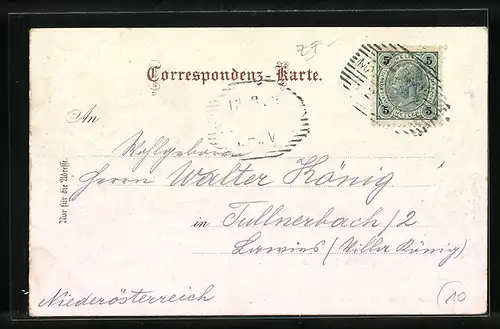 25-
Correspondenz-Karte.
5 5
5 5
An
Wohlgeboren
Herrn Walter König
in Tullnerbach/2
Lawies (Villa König)
Niederösterreich
Nur für die Adresse.
(10